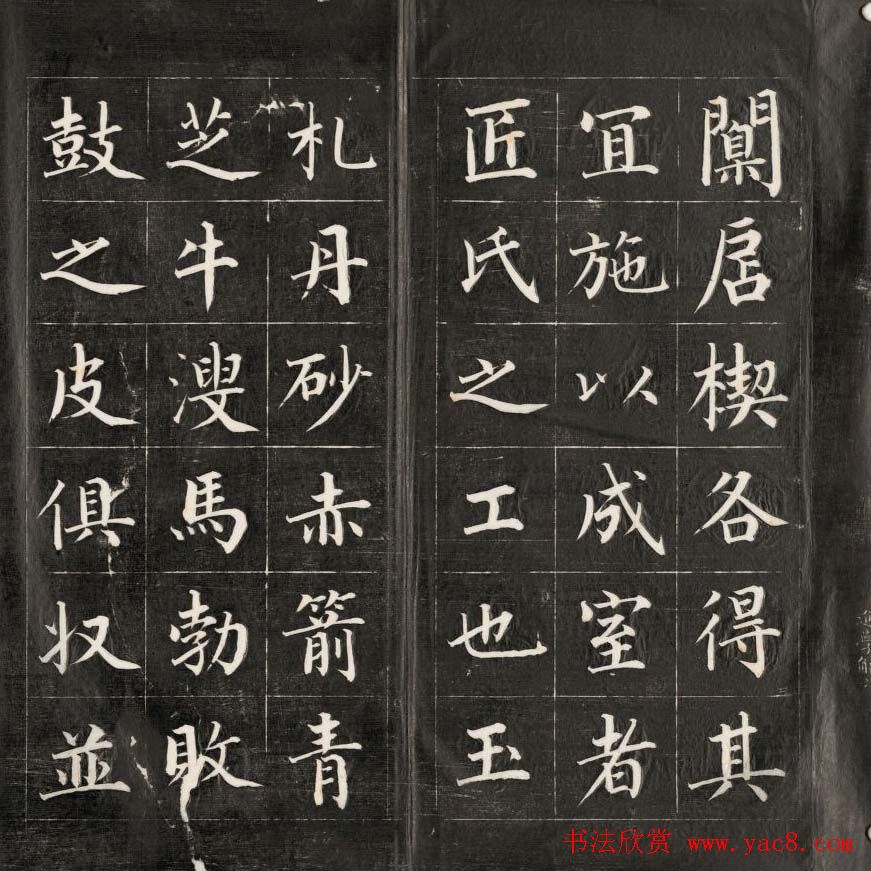 闑扂楔各得其
宜施以成室者
匠氏之工也玉
札丹砂赤箭青
芝牛溲馬勃敗
鼓之皮俱收並
书法欣赏 www.yac8.com